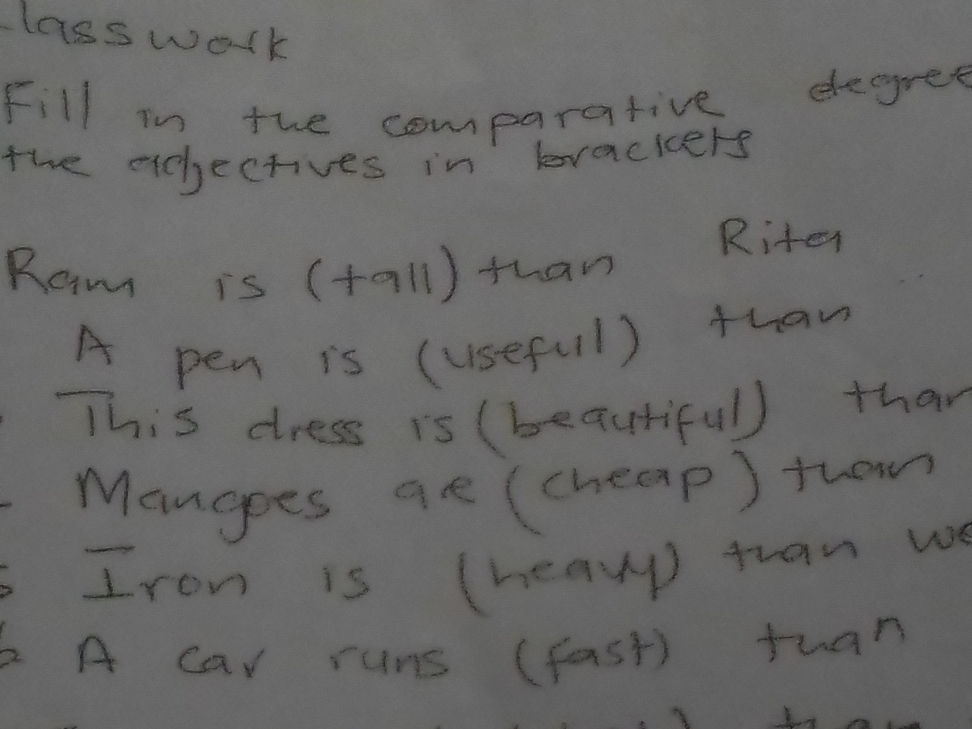 lasswork
Fill in the comparative degree
the adjectives in brackets
Ram is (tall) than Rita
A pen is (useful) than
This dress is (beautiful) than
Mangoes are (cheap) than
5 Iron is (heavy) than
6 A car runs (fast) than
than